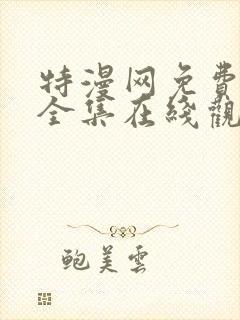 特漫网免费
全集在线觀
鲍美雲